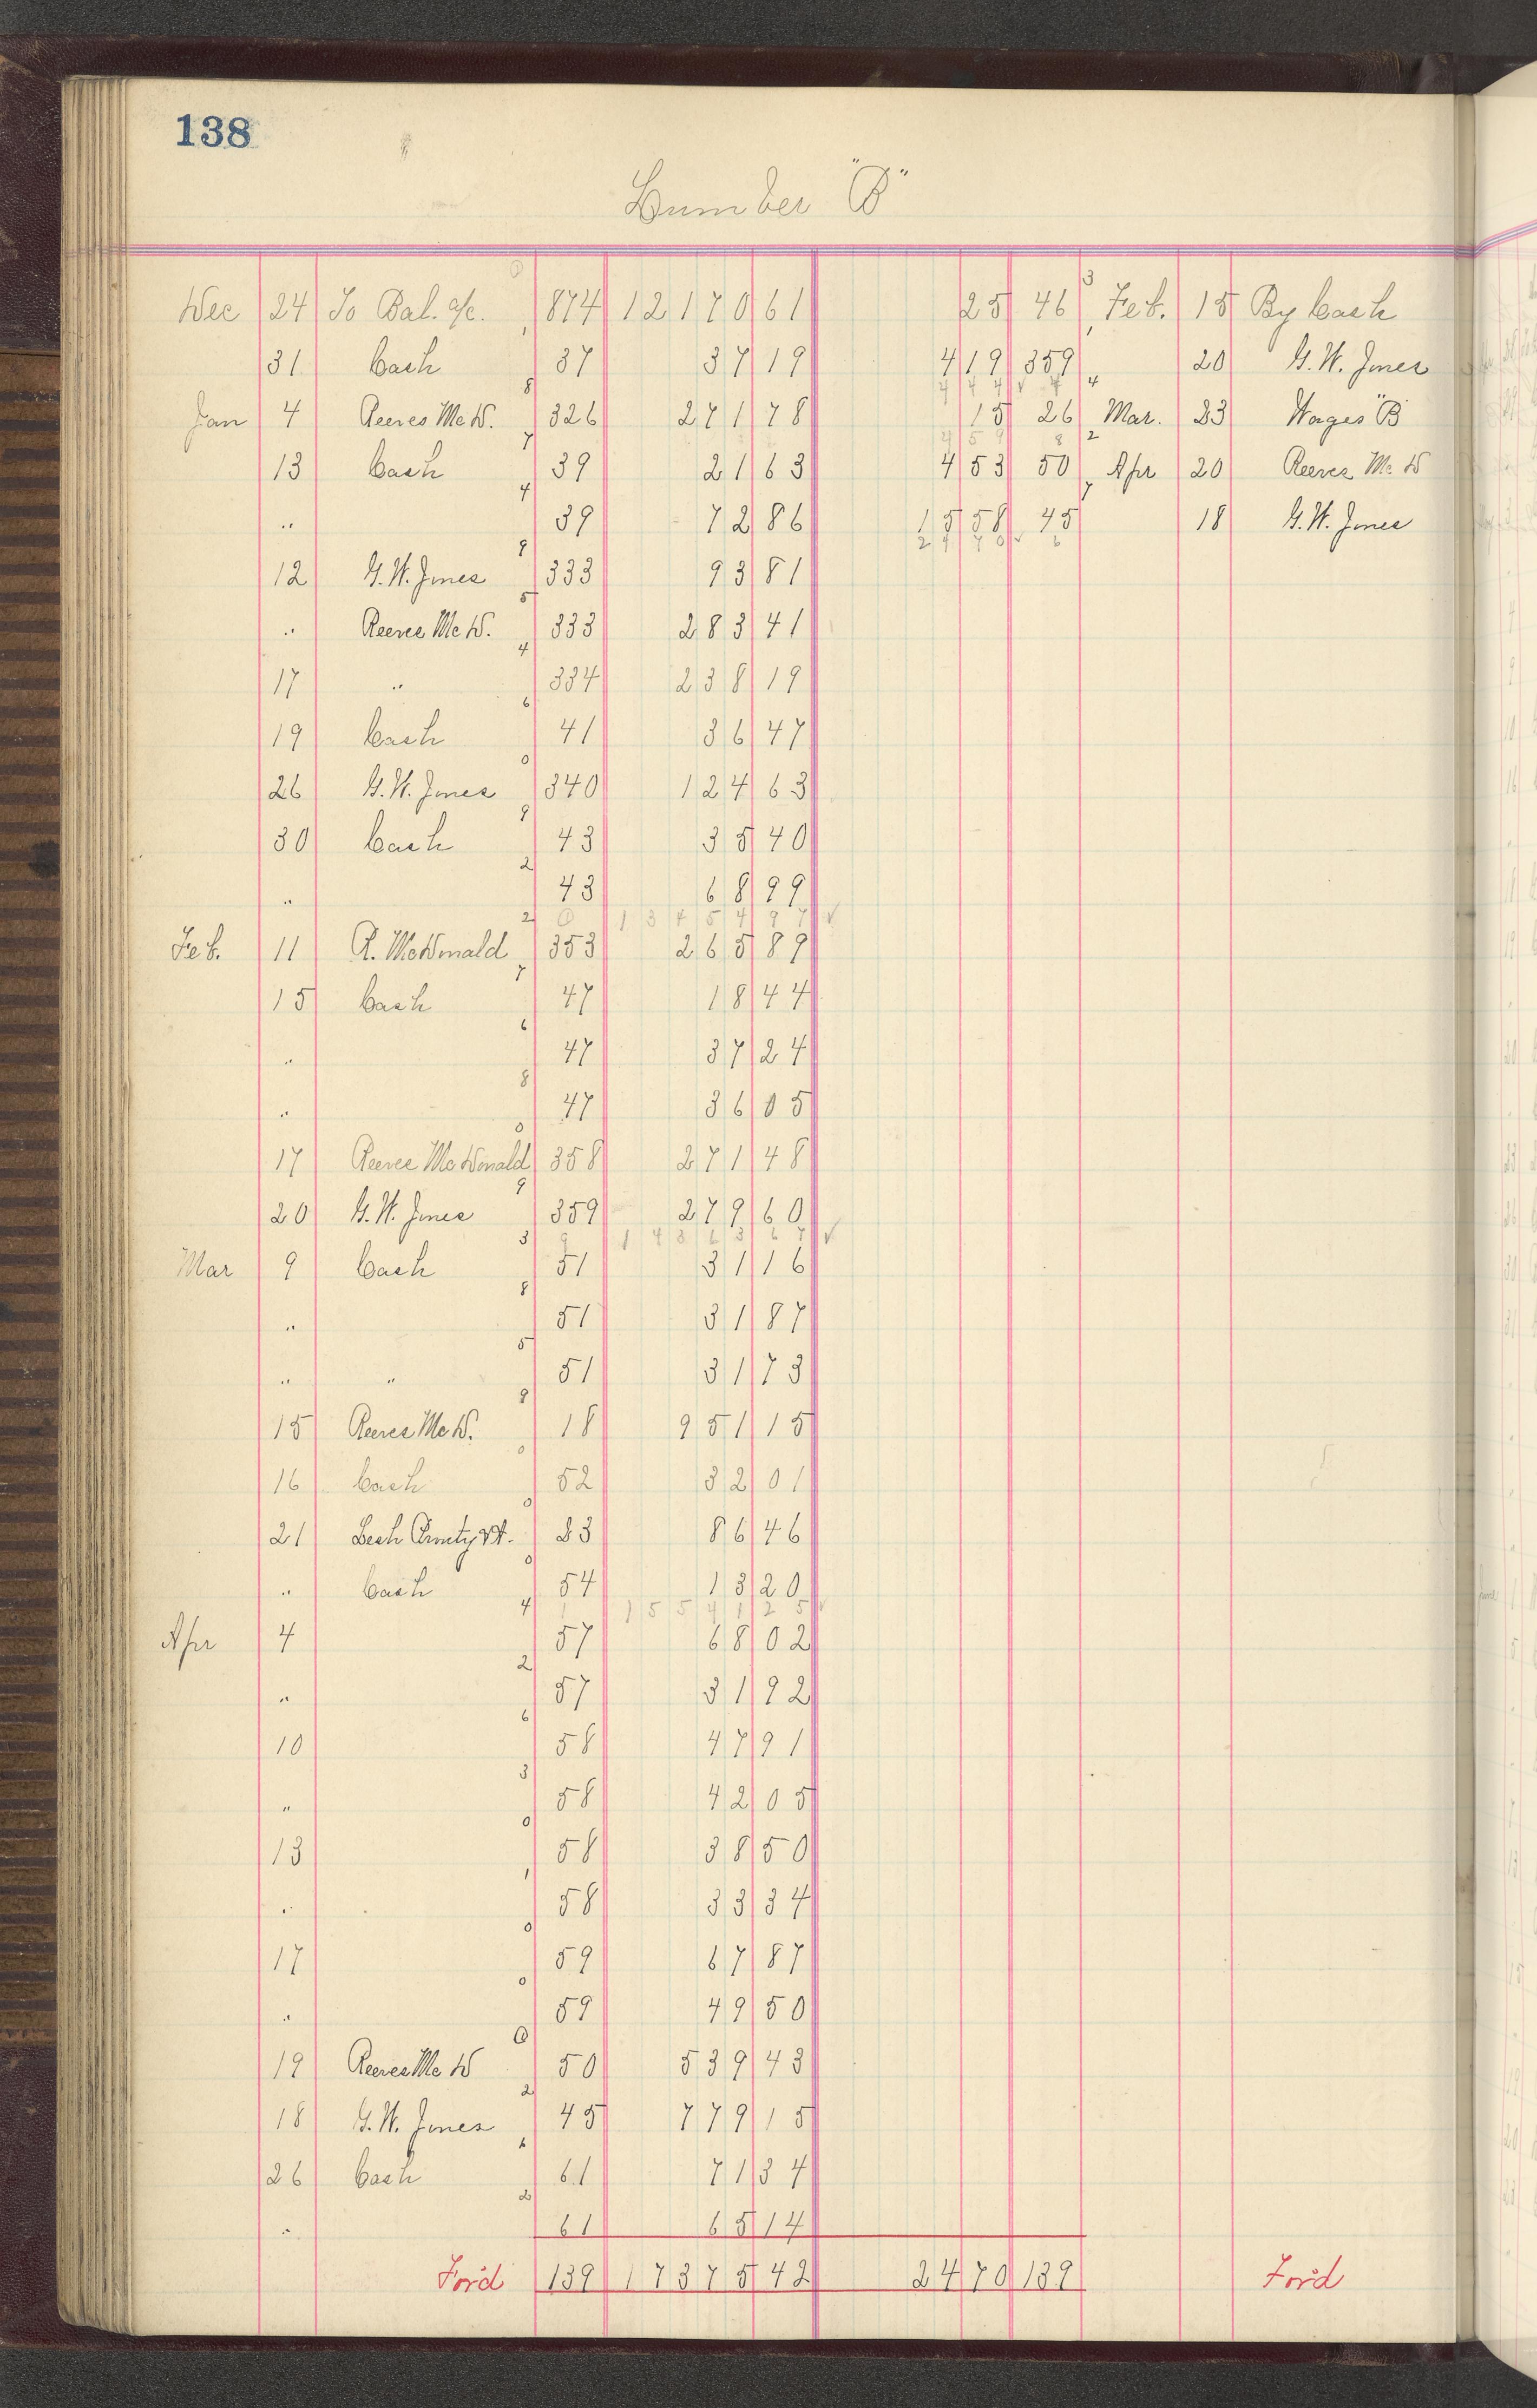 138
Lumber "B"
Dec 24 To Bal. a/c. 874 12170 61 25 46 Feb. 15 By Cash
31 Cash 37 37 19 419 359 20 G.W. Jones
Jan 4 Reeves McD. 326 271 78 15 26 Mar. 23 Wages "B"
13 Cash 39 21 63 453 50 Apr 20 Reeves Mc D
" 39 72 86 1558 45 18 G.W. Jones
12 G.W. Jones 333 93 81
" Reeves McD. 333 283 41
17 " 334 238 19
19 Cash 41 36 47
26 G.W. Jones 340 124 63
30 Cash 43 35 40
" 43 68 99
13454 97
Feb. 11 R. McDonald 353 265 89
15 Cash 47 18 44
" 47 37 24
" 47 36 05
17 Reeves McDonald 358 271 48
20 G.W. Jones 359 279 60
Mar 9 Cash 51 31 16
" 51 31 87
" " 51 31 73
15 Reeves McD. 18 951 15
16 Cash 52 32 01
21 33 86 46
" Cash 54 13 20
1554 1 25
Apr 4 57 68 02
" 57 31 92
10 58 47 91
" 58 42 05
13 58 38 50
" 58 33 34
17 59 67 87
" 59 49 50
19 Reeves Mc D 50 539 43
18 G.W. Jones 45 779 15
26 Cash 61 71 34
" 61 65 14
For'd 139 17375 42 2470 139 For'd